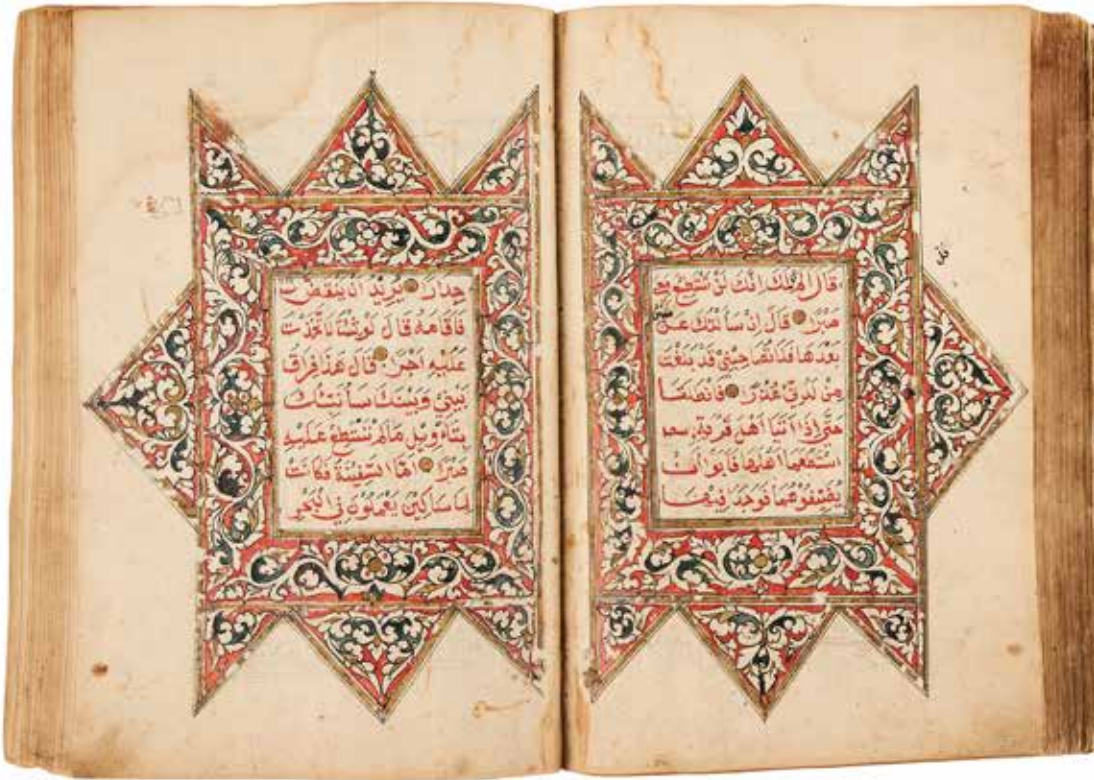 قال لك انك لن تستطع مع
صبرا قال ان سألتك عن
بعدها فلا تصاحبني قد بلغت
من لدني عذرا فانطلقا
حتى اذا اتيا اهل قرية
استطعما اهلها فابوا ان
يضيفوهما فوجدا فيها
جدارا يريد ان ينقض
فاقامه قال لو شئت لاتخذت
عليه اجرا قال هذا فراق
بيني وبينك سانبئك
بتاويل ما لم تستطع عليه
صبرا اما السفينة فكانت
لمساكين يعملون في البحر